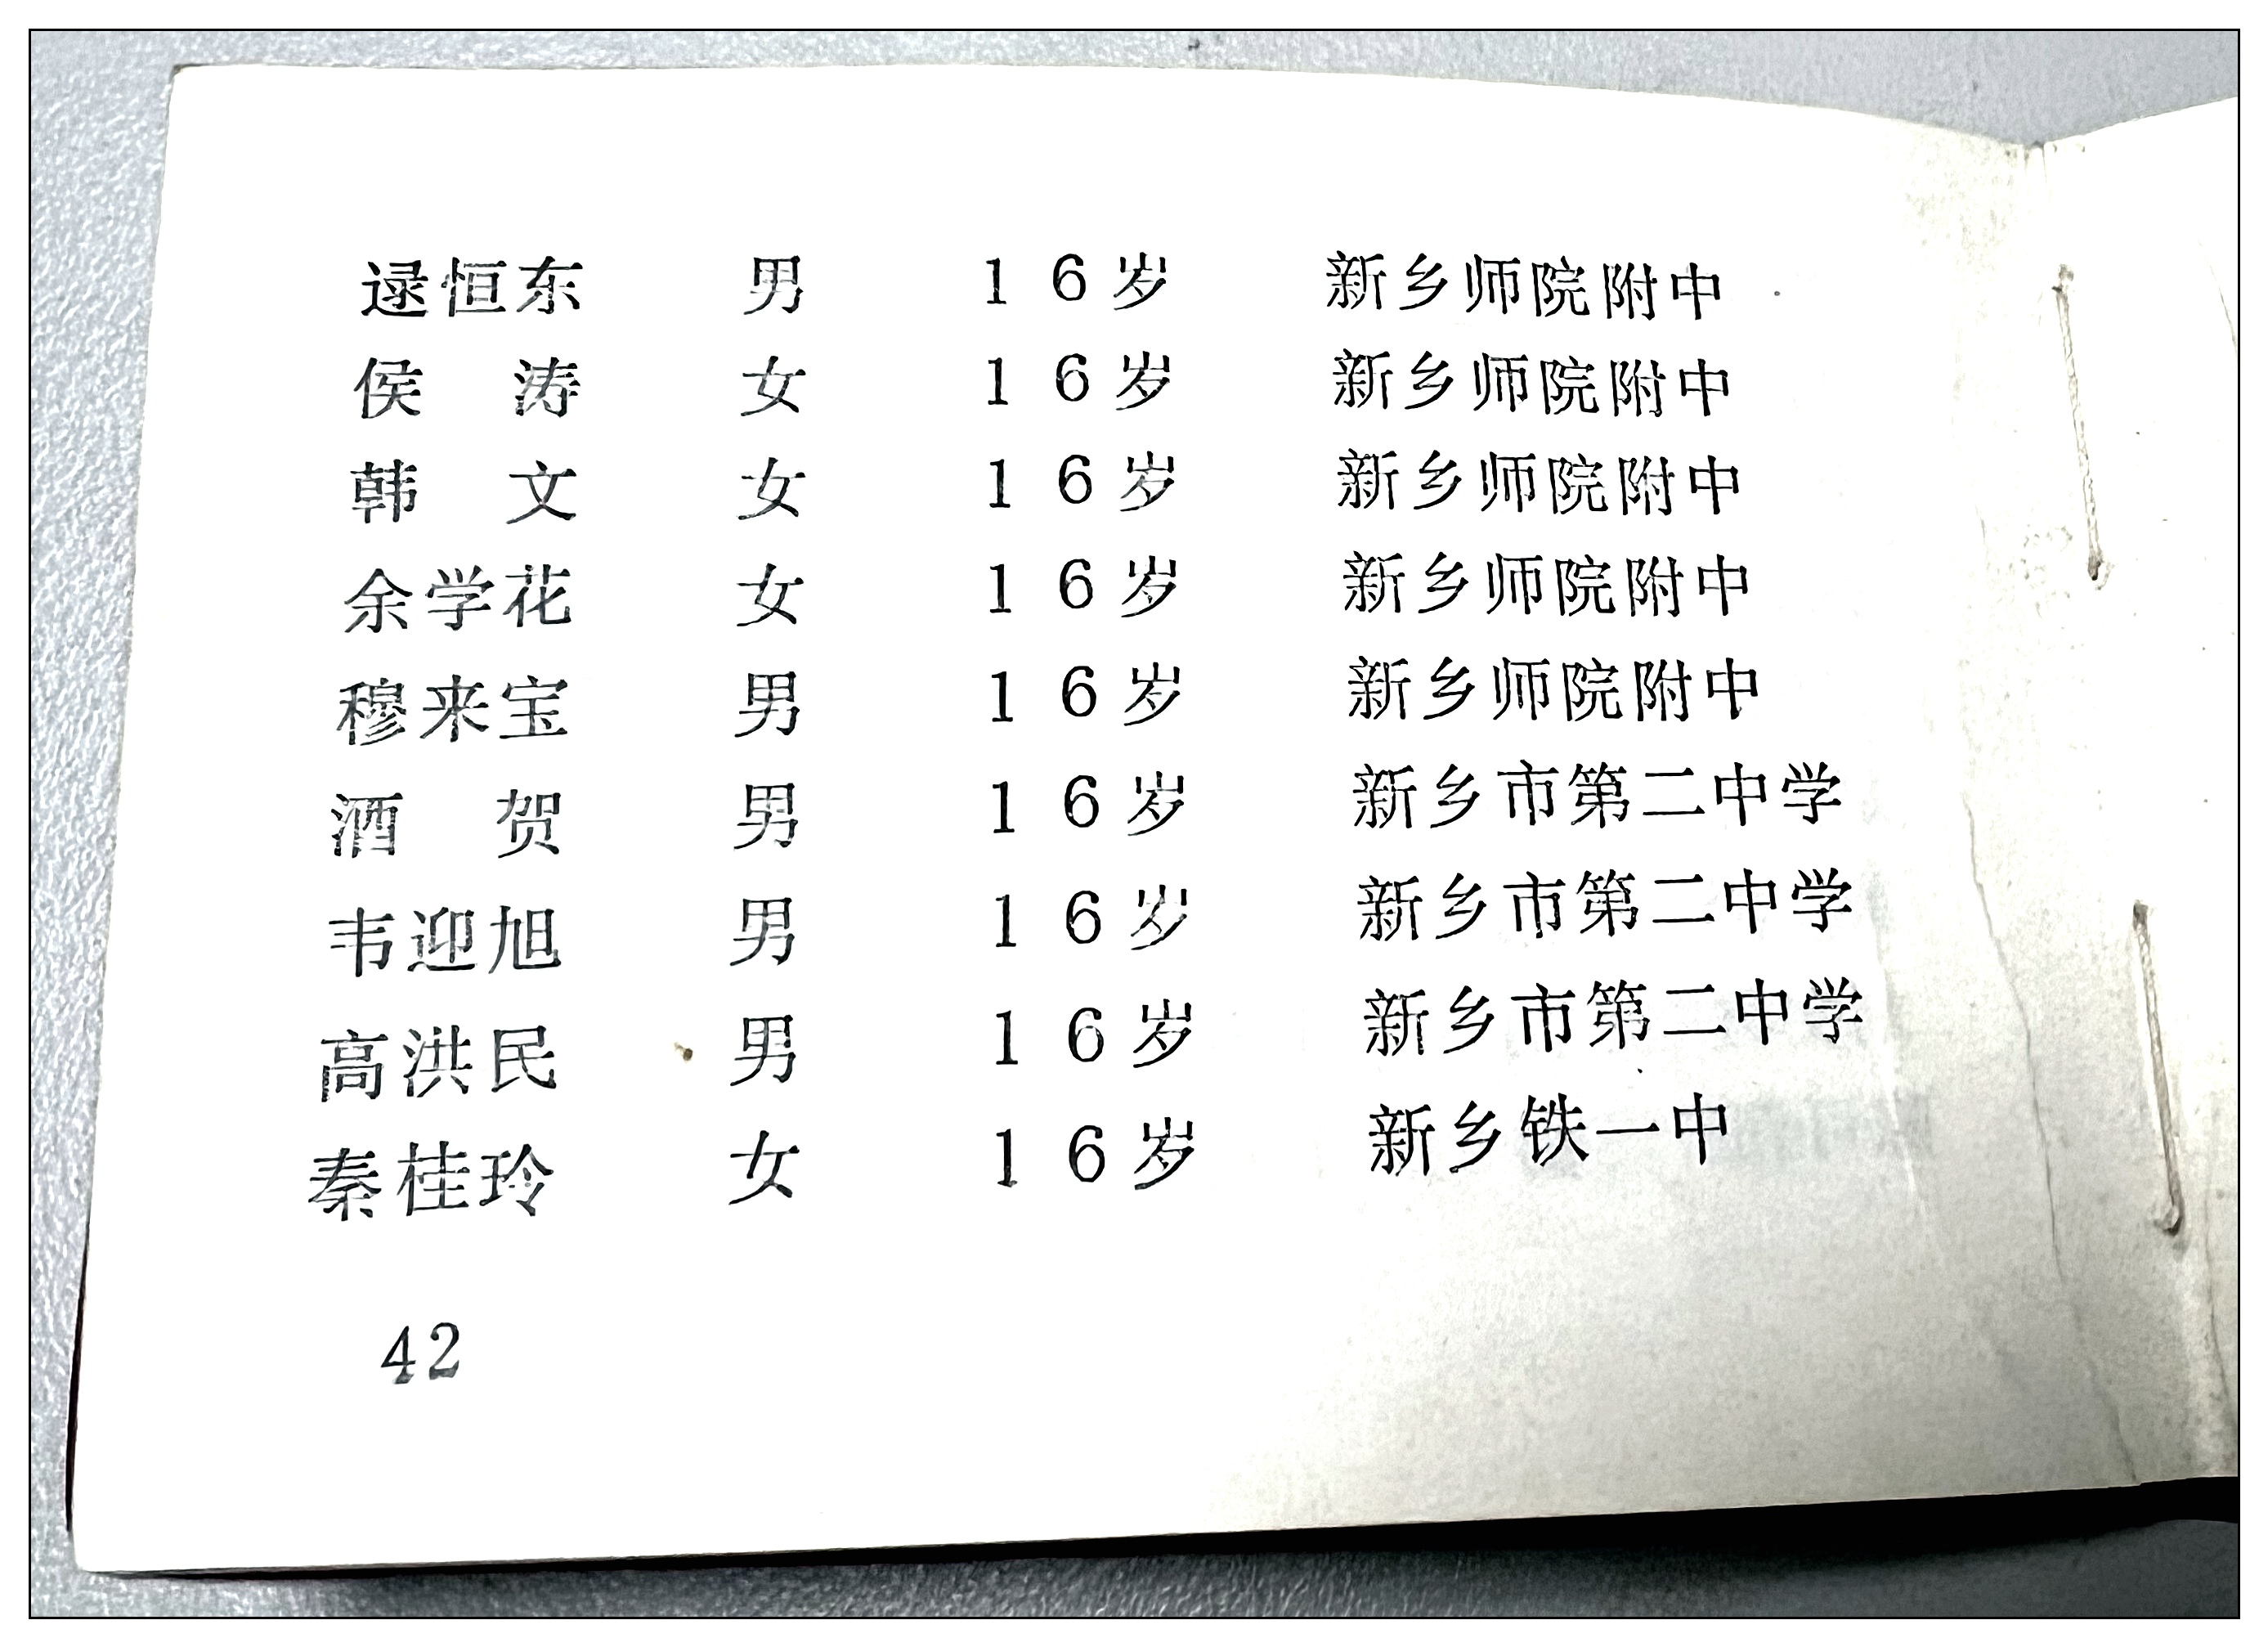 逯恒东 男 16岁 新乡师院附中
侯 涛 女 16岁 新乡师院附中
韩 文 女 16岁 新乡师院附中
余学花 女 16岁 新乡师院附中
穆来宝 男 16岁 新乡师院附中
酒 贺 男 16岁 新乡市第二中学
韦迎旭 男 16岁 新乡市第二中学
高洪民 男 16岁 新乡市第二中学
秦桂玲 女 16岁 新乡铁一中
42